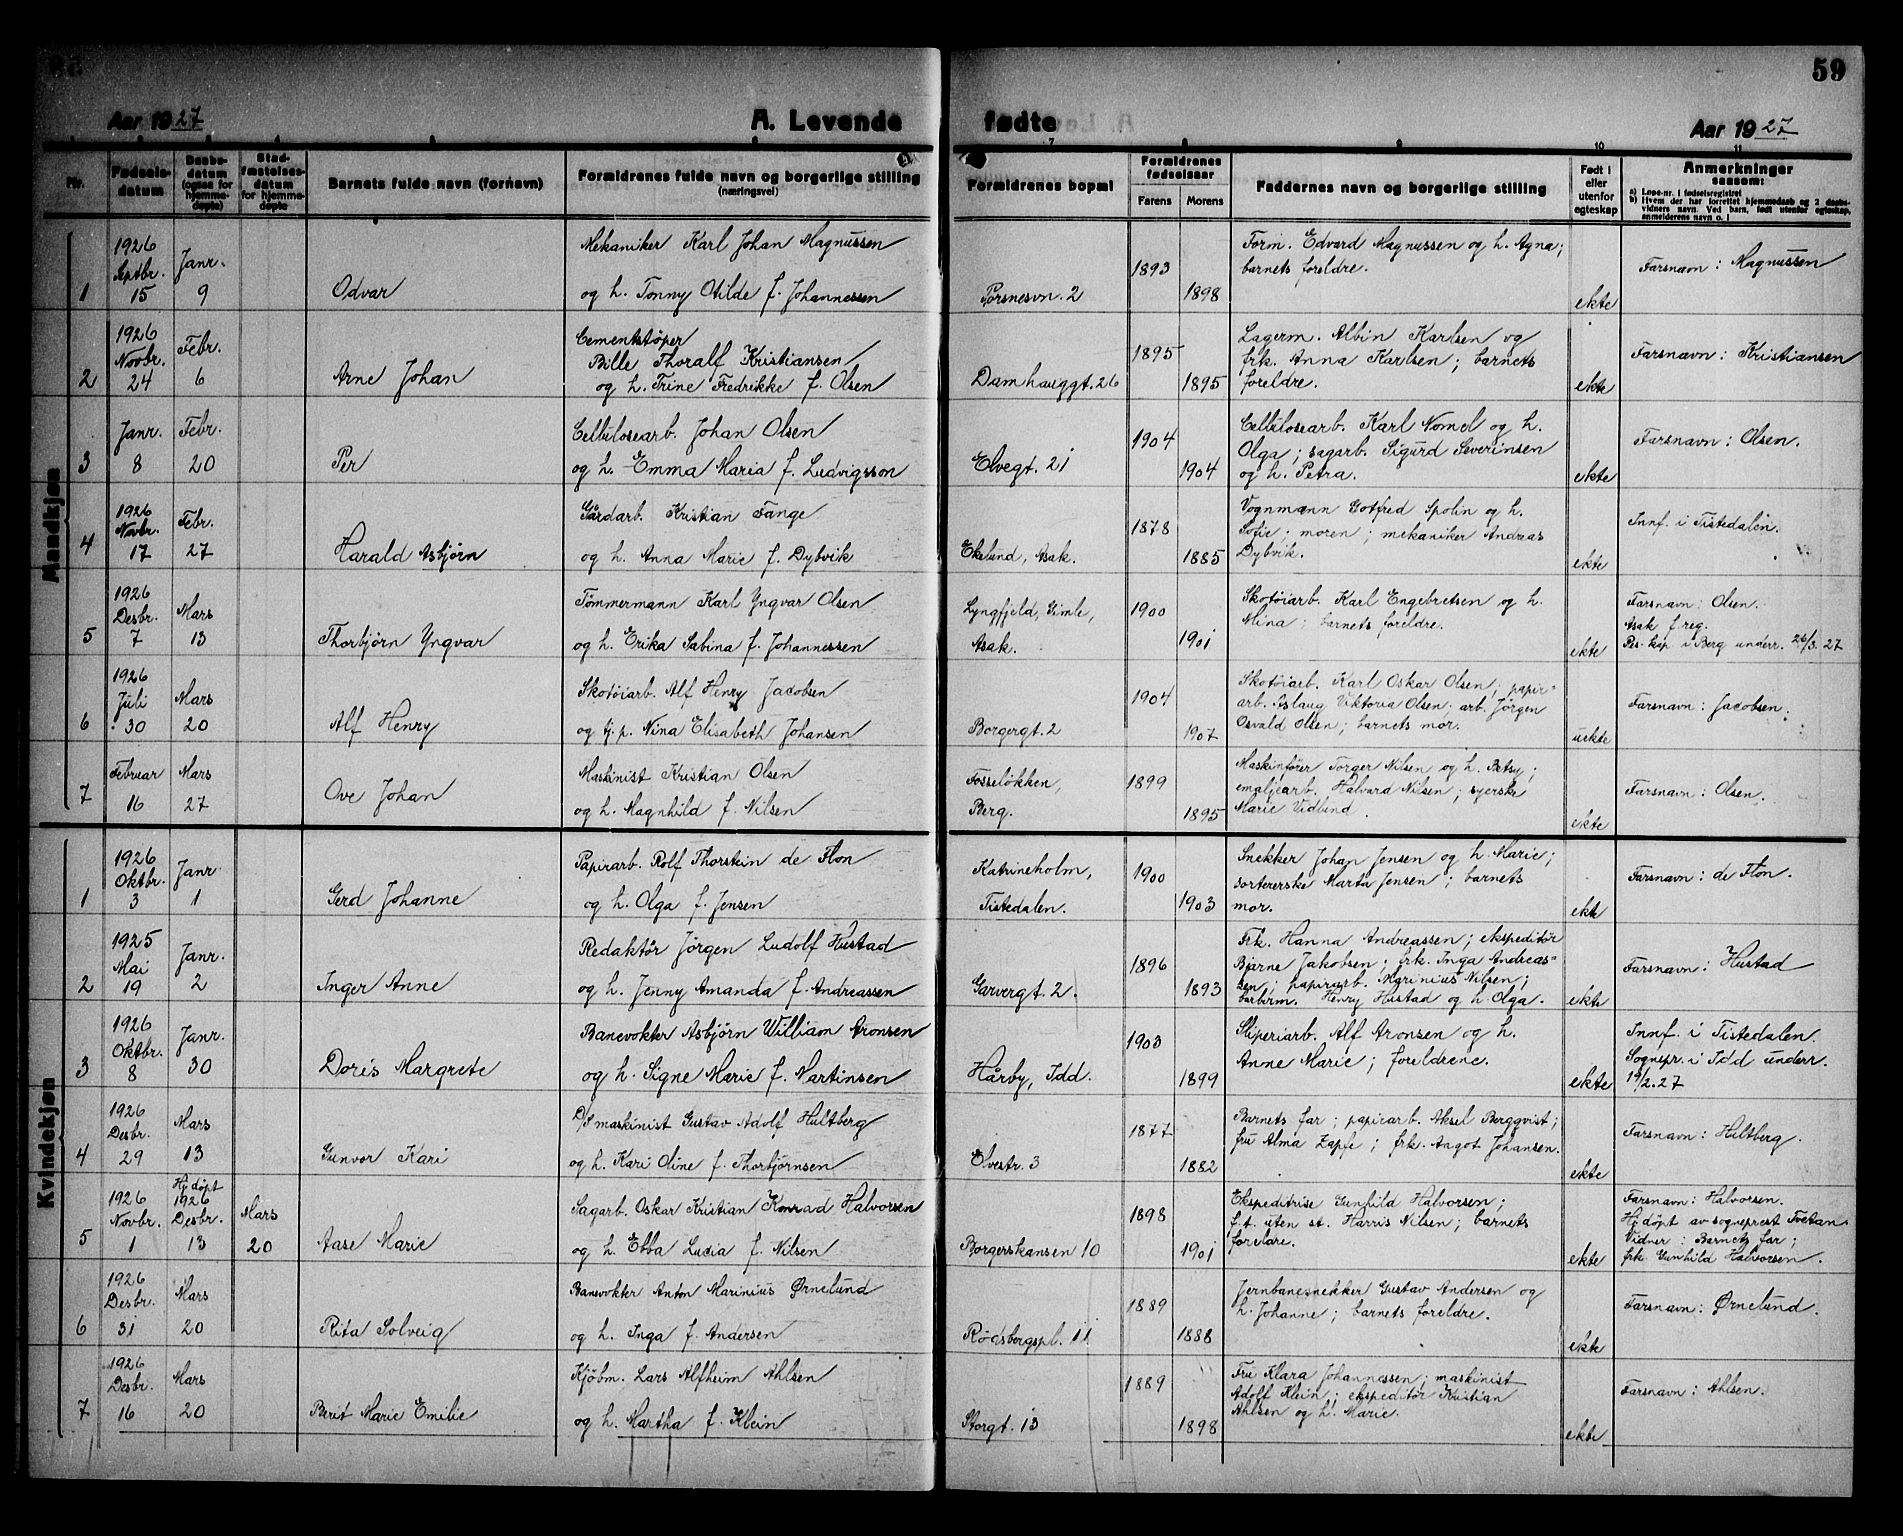 59
Aar 1927
A. Levende
fødte
Aar 1927
Nr.
Fødsels-
datum
Daabs-
datum
(ogsaa for
hjemme-
døpte)
Stad-
fæstelses-
datum
for hjemme-
døpte
Barnets fulde navn (fornavn)
Forældrenes fulde navn og borgerlige stilling
(næringsvei)
Forældrenes bopæl
Forældrenes
fødselsaar
Farens
Morens
Faddernes navn og borgerlige stilling
Født i
eller
utenfor
egteskap
Anmerkninger
saasom:
a) Løpe-nr. i fødselsregistret
b) Hvem der har forrettet hjemmedaab og 2 daabs-
vidners navn. Ved barn, født utenfor egteskap,
anmelderens navn o. l.
Mandkjøn
1
1926
Septbr.
15
Janr.
9
Odvar
Mekaniker Karl Johan Magnussen
og h. Tonny Otilde f. Johannessen
Porsnesvn. 2
1893
1898
Form. Edvard Magnussen og h. Agna;
barnets foreldre.
ekte
Farsnavn: Magnussen
2
1926
Novbr.
24
Febr.
6
Arne Johan
Cementstøper
Bille Thoralf Kristiansen
og h. Trine Fredrikke f. Olsen
Damhauggt. 26
1895
1895
Lagerm. Albin Karlsen og
frk. Anna Karlsen; barnets
foreldre.
ekte
Farsnavn: Kristiansen
3
Janr.
8
Febr.
20
Per
Cellulosearb. Johan Olsen
og h. Emma Maria f. Ludvigsson
Elvegt. 21
1904
1904
Cellulosearb. Karl Nomel og h.
Olga; sagarb. Sigurd Severinsen
og h. Petra.
ekte
Farsnavn: Olsen.
4
1926
Novbr.
17
Febr.
27
Harald Asbjørn
Gårdarb. Kristian Fange
og h. Anna Marie f. Dybvik
Ekelund, Asak.
1878
1885
Vognmann Gotfred Spolin og h.
Sofie; moren; mekaniker Andreas
Dybvik.
ekte
Innf. i Tistedalen.
5
1926
Desbr.
7
Mars
13
Thorbjørn Yngvar
Tømmermann Karl Yngvar Olsen
og h. Erika Sabina f. Johannessen
Lyngfjeld, Gimle,
Asak.
1900
1901
Skotøiarb. Karl Engebretsen og h.
Mina; barnets foreldre.
ekte
Farsnavn: Olsen.
Asak f. reg.
Res. kap i Berg underr. 26/3. 27
6
1926
Juli
30
Mars
20
Alf Henry
Skotøiarb. Alf Henry Jacobsen
og tj.p. Nina Elisabeth Johansen
Borgergt. 2
1904
1907
Skotøiarb. Karl Oskar Olsen; papir=
arb. Aslaug Viktoria Olsen; arb. Jørgen
Osvald Olsen; barnets mor.
uekte
Farsnavn: Jacobsen.
7
Februar
16
Mars
27
Ove Johan
Maskinist Kristian Olsen
og h. Magnhild f. Nilsen
Fosseløkken,
Berg.
1899
1895
Maskinfører Torger Nilsen og h. Betsy;
emaljearb. Halvard Nilsen; syerske
Marie Vidlund.
ekte
Farsnavn: Olsen.
Kvindekjøn
1
1926
Oktbr.
3
Janr.
1
Gerd Johanne
Papirarb. Rolf Thorstein de Flon
og h. Olga f. Jensen
Katrineholm,
Tistedalen.
1900
1903
Snekker Johan Jensen og h. Marie;
sortererske Marta Jensen; barnets
mor.
ekte
Farsnavn: de Flon.
2
1925
Mai
19
Janr.
2
Inger Anne
Redaktør Jørgen Ludolf Hustad
og h. Jenny Amanda f. Andreassen
Garvergt. 2.
1896
1893
Frk. Hanna Andreassen; ekspeditør
Bjarne Jakobsen; frk. Inga Andreas=
sen; papirarb. Marinius Nilsen;
barberm. Henry Hustad og h. Olga.
ekte
Farsnavn: Hustad
3
1926
Oktbr.
8
Janr.
30
Doris Margrete
Banevokter Asbjørn William Aronsen
og h. Signe Marie f. Martinsen
Hårby, Idd.
1903
1899
Sliperiarb. Alf Aronsen og h.
Anne Marie; foreldrene.
ekte
Innf. i Tistedalen.
Sognepr. i Idd underr.
19/2. 27
4
1926
Desbr.
29
Mars
13
Gunvor Kari
D/S maskinist Gustav Adolf Hultberg
og h. Kari Oline f. Thorbjørnsen
Elvestr. 3
1877
1882
Barnets far; papirarb. Aksel Bergqvist;
fru Alma Zapfe; frk. Aagot Johansen.
ekte
Farsnavn: Hultberg.
5
1926
Novbr.
1
Hj.døpt
1926
Desbr.
13
Mars
20
Aase Marie
Sagarb. Oskar Kristian Konrad Halvorsen
og h. Ebba Lucia f. Nilsen
Borgerskansen 10
1898
1901
Ekspeditrise Gunhild Halvorsen;
f.t. uten st. Harris Nilsen; barnets
foreldre.
ekte
Farsnavn: Halvorsen.
Hj.døpt av sogneprest Tvetan.
Vidner: Barnets far;
frk. Gunhild Halvorsen.
6
1926
Desbr.
31
Mars
20
Rita Solveig
Banevokter Anton Marinius Ørnelund
og h. Inga f. Andersen
Rødsbergspl. 11
1889
1888
Jernbanesnekker Gustav Andersen og
h. Johanne; barnets foreldre.
ekte
Farsnavn: Ørnelund.
7
1926
Desbr.
16
Mars
20
Berit Marie Emilie
Kjøbm. Lars Alfheim Ahlsen
og h. Martha f. Klein
Storgt. 13
1889
1898
Fru Klara Johannessen; maskinist
Adolf Klein; ekspeditør Kristian
Ahlsen og h. Marie.
ekte
Farsnavn: Ahlsen.